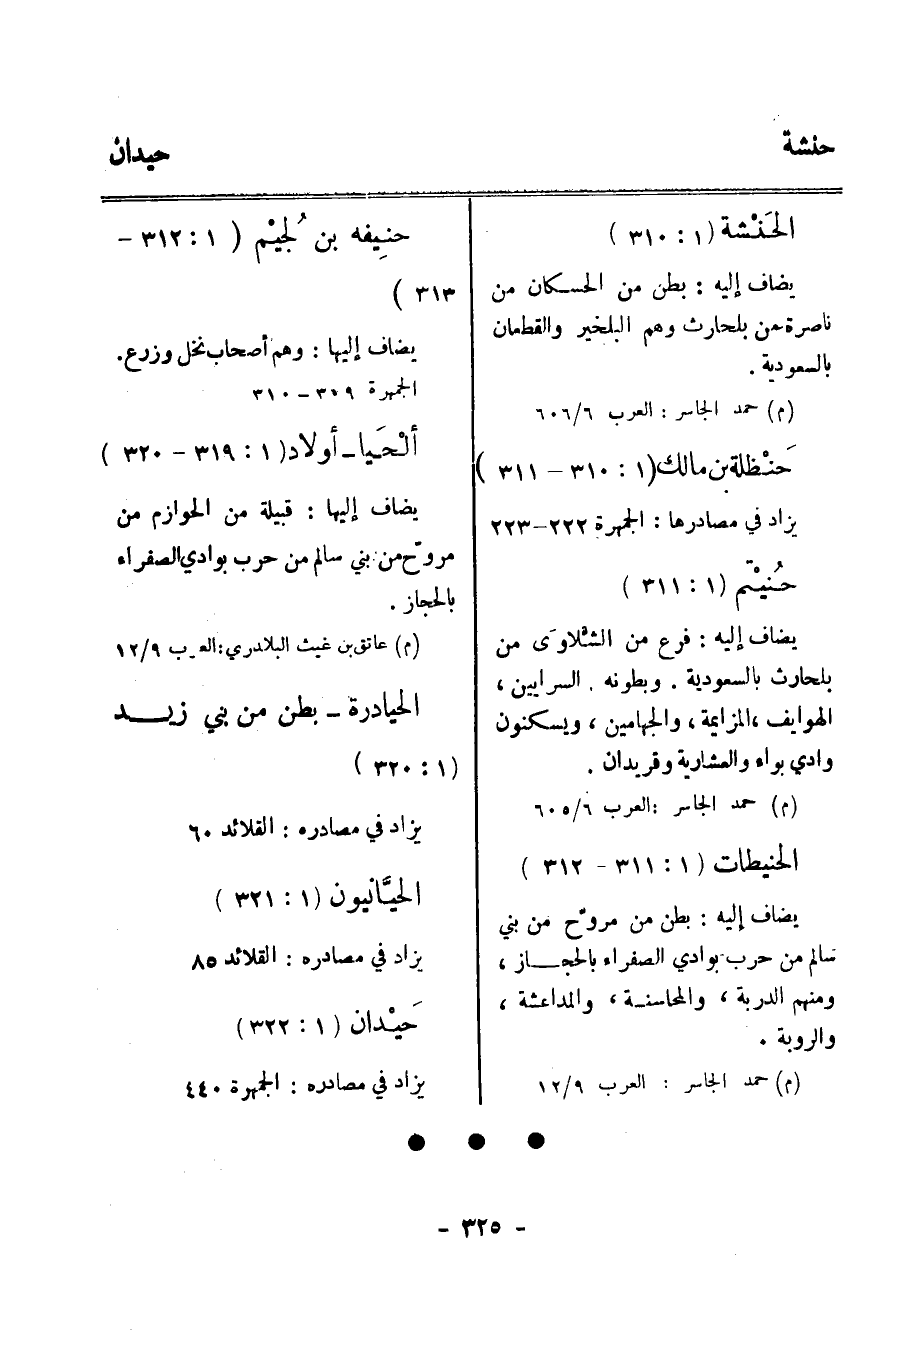 حنشة
حيدان
الحَنْشة (١ : ٣١٠)
يضاف إليه : بطن من الحسكان من
ناصرة من بلحارث وهم البلخير والقطمان
بالسعودية .
(م) حمد الجاسر : العرب ٦٠٦/٦
حَنْظلة بن مالك (١ : ٣١٠ – ٣١١)
يزاد في مصادرها : الجمهرة ٢٢٢–٢٢٣
حُنيْتم (١ : ٣١١)
يضاف إليه : فرع من الشلاوى من
بلحارث بالسعودية . وبطونه . السرايين ،
الهوايف ، المزايمة ، والجهامين ، ويسكنون
وادي بواء والعشارية وقريدان .
(م) حمد الجاسر : العرب ٦٠٥/٦
الحنيطات (١ : ٣١١ – ٣١٢)
يضاف إليه : بطن من مروّح من بني
سالم من حرب بوادي الصفراء بالحجاز ،
ومنهم الدربة ، والمحاسنة ، والمداعثة ،
والروبة .
(م) حمد الجاسر : العرب ١٢/٩
حنِيفه بن لُجيْم (١ : ٣١٢ –
٣١٣)
يضاف إليها : وهم أصحاب نخل وزرع.
الجمهرة ٣٠٩ – ٣١٠
ألْحَيا ـ أولاد (١ : ٣١٩ – ٣٢٠)
يضاف إليها : قبيلة من الحوازم من
مروّح من بني سالم من حرب بوادي الصفراء
بالحجاز .
(م) عاتق بن غيث البلادري : العرب ١٢/٩
الحيادرة ـ بطن من بني زيد
(١ : ٣٢٠)
يزاد في مصادره : القلائد ٦٠
الحيَّانيون (١ : ٣٢١)
يزاد في مصادره : القلائد ٨٥
حَيْدان (١ : ٣٢٢)
يزاد في مصادره : الجمهرة ٤٤٠
- ٣٢٥ -